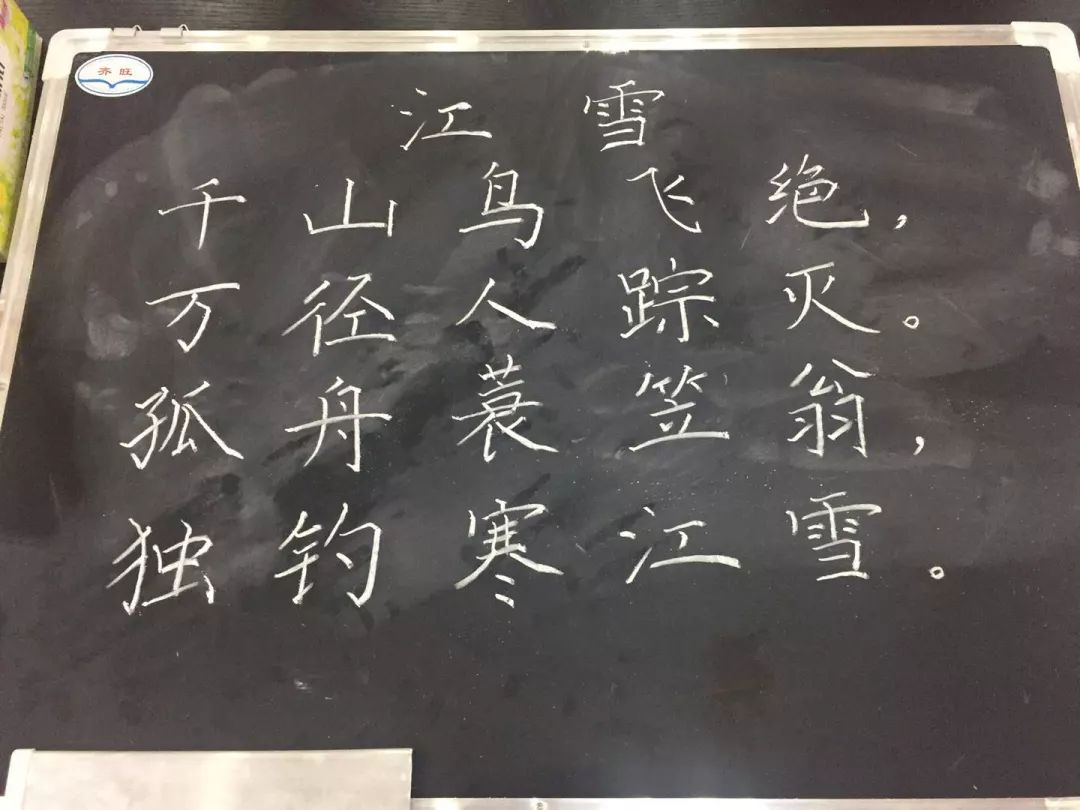 齐旺
江雪
千山鸟飞绝，
万径人踪灭。
孤舟蓑笠翁，
独钓寒江雪。